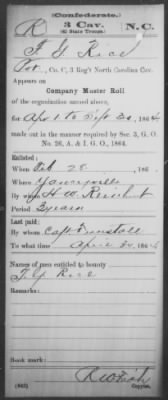 (Confederate.)
R 3 Cav. N.C.
(41 State Troops.)
F G Rice
Pvt., Co. C, 3 Reg't North Carolina Cav.
Appears on
Company Muster Roll
of the organization named above,
for Apr 1 to Sept 30, 1864
made out in the manner required by Sec. 3, G. O.
No. 26, A. & I. G. O., 1864.
Enlisted:
When Feb 28, 186
Where Yanceyville
By whom H. W. Reinhart
Period 3 years
Last paid:
By whom Capt Tunstall
To what time April 30, 1864
Names of men entitled to bounty
F. G. Rice
Remarks:
Book mark:
(642) Copyist.